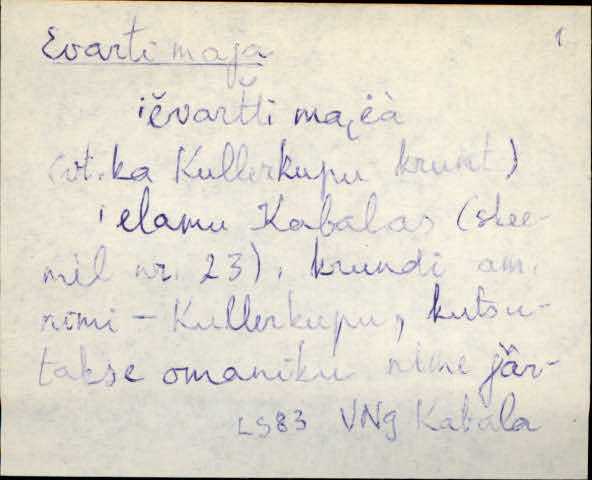 Evarti maja 1.
ìĕvart̆ti maįèà
(vt. ka Kullerkupu krunt)
'elamu Kabalas (skee-
mil nr. 23), krundi am.
nimi - Kullerkupu, kutsu-
takse omaniku nime jär-
LS83 VNg Kabala